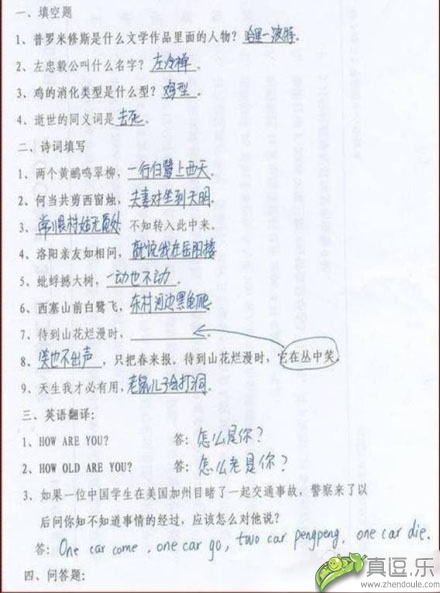 一、填空题
1、普罗米修斯是什么文学作品里面的人物？哈里-波特.
2、左忠毅公叫什么名字？左冷禅.
3、鸡的消化类型是什么型？鸡型.
4、逝世的同义词是去死.
二、诗词填写
1、两个黄鹂鸣翠柳，一行白鹭上西天.
2、何当共剪西窗烛，夫妻对坐到天明.
3、常恨村姑无觅处 不知转入此中来。
4、洛阳亲友如相问，就说我在岳阳楼
5、蚍蜉撼大树，一动也不动.
6、西塞山前白鹭飞，东村河边黑龟爬.
7、待到山花烂漫时，
8、笑也不出声，只把春来报。待到山花烂漫时，它在丛中笑。
9、天生我才必有用，老鼠儿子会打洞.
三、英语翻译：
1、HOW ARE YOU? 答：怎么是你？
2、HOW OLD ARE YOU? 答：怎么老是你？
3、如果一位中国学生在美国加州目睹了一起交通事故，警察来了以
后问你知不知道事情的经过，应该怎么对他说？
答：One car come, one car go, two car pengpeng, one car die.
四、问答题：
真逗.乐
www.zhendoule.com